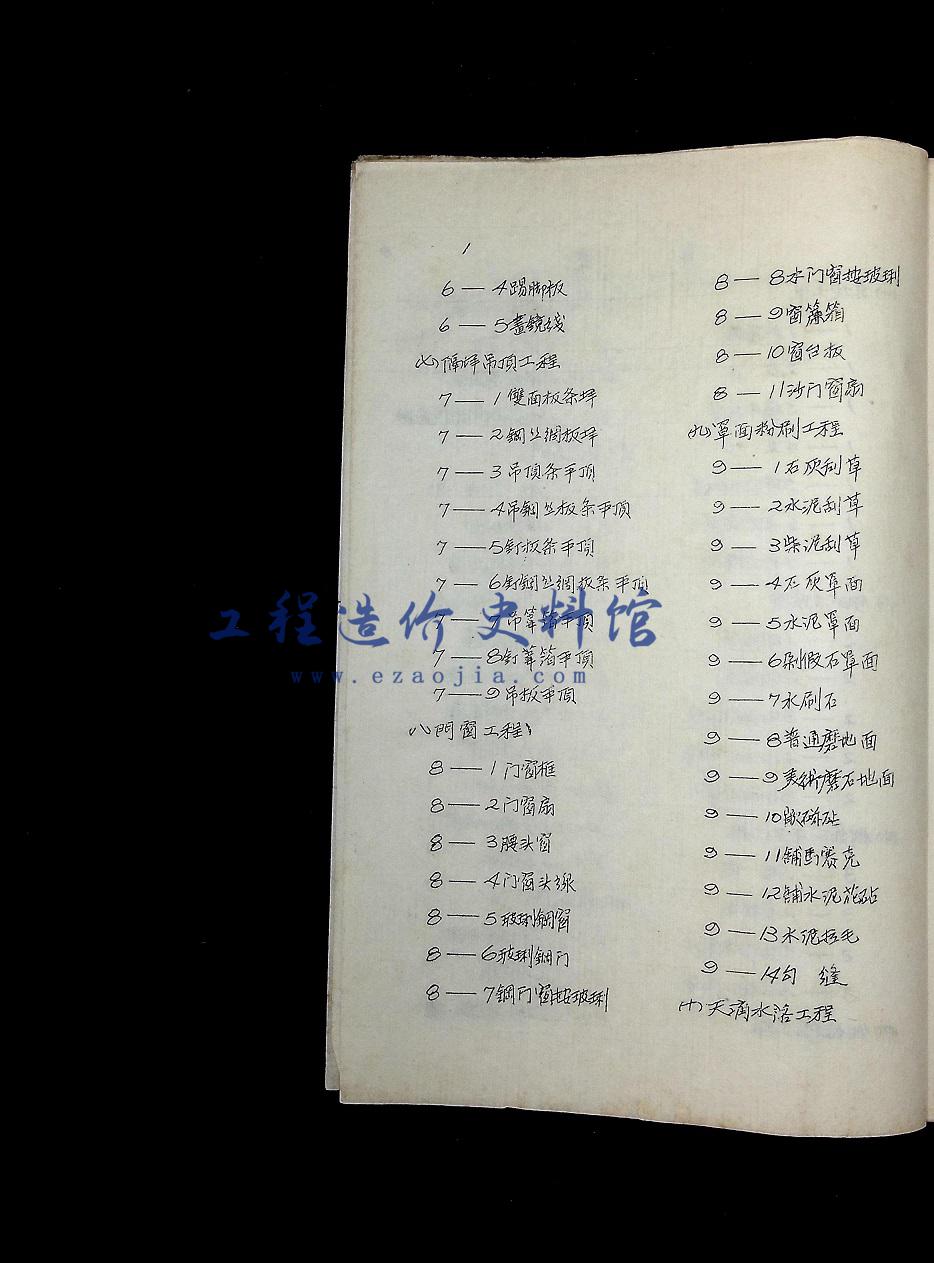 1
6—4踢脚板
6—5畫鏡线
七)隔坪吊頂工程
7—1雙面板条坪
7—2鋼丝網板坪
7—3吊頂条平頂
7—4吊鋼丝板条平頂
7—5釘板条平頂
7—6釘鋼丝網板条平頂
7—7吊葦箔平頂
7—8釘葦箔平頂
7—9吊板平頂
八門窗工程
8—1门窗框
8—2门窗扇
8—3腰头窗
8—4门窗头線
8—5玻琍鋼窗
8—6玻琍鋼门
8—7鋼门窗按玻琍
8—8木门窗按玻琍
8—9窗簾箱
8—10窗台板
8—11沙门窗扇
九)罩面粉刷工程
9—1石灰刮草
9—2水泥刮草
9—3柴泥刮草
9—4石灰罩面
9—5水泥罩面
9—6剁假石罩面
9—7水刷石
9—8普通磨地面
9—9美術磨石地面
9—10 磁砖
9—11舖馬赛克
9—12舖水泥花砖
9—13水泥拉毛
9—14勾 缝
(十)天滴水落工程
工程造价史料馆
www.ezaojia.com